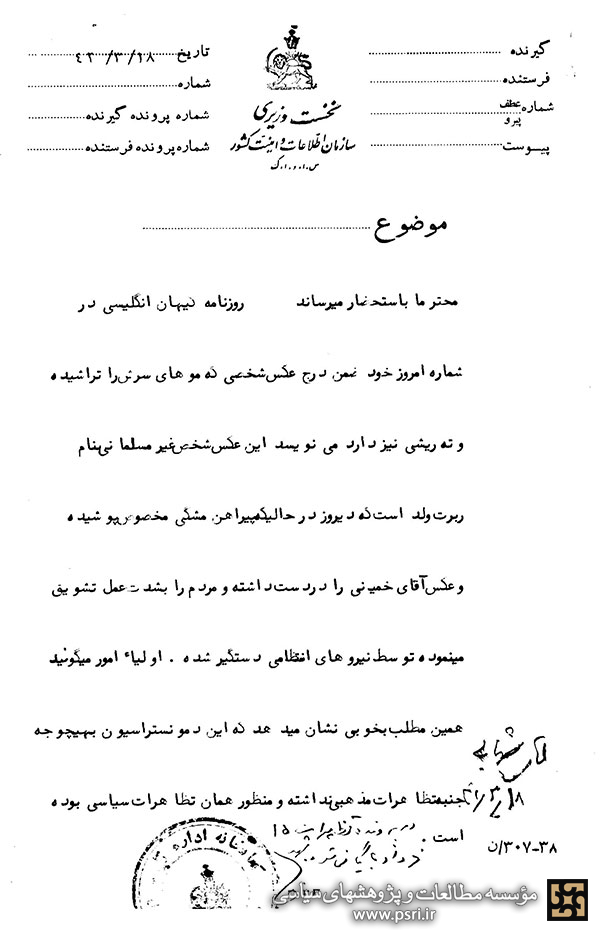 گیرنده
فرستنده
شماره عطف
پیرو
پیوست
نخست وزیری
سازمان اطلاعات و امنیت کشور
س.ا.و.ا.ک
تاریخ ۴۳/۳/۱۸
شماره
شماره پرونده گیرنده
شماره پرونده فرستنده
موضوع
محترما باستحضار میرساند روزنامه کیهان انگلیسی در
شماره امروز خود ضمن درج عکس شخصی که موهای سرش را تراشیده
و ته ریشی نیز دارد می نویسد این عکس شخص غیر مسلمانی بنام
ربرت ولد است که دیروز در حالیکه پیراهن مشکی مخصوص پوشیده
و عکس آقای خمینی را در دست داشته و مردم را بشدت عمل تشویق
مینموده توسط نیروهای انتظامی دستگیر شده . اولیاء امور میگویند
همین مطلب بخوبی نشان میدهد که این دمونستراسیون بهیچوجه
جنبه تظاهرات مذهبی نداشته و منظور همان تظاهرات سیاسی بوده
است .
در پرونده تظاهرات ۱۵
خرداد بایگانی شود
۳۰۷-۳۸/ن
مؤسسه مطالعات و پژوهشهای سیاسی
www.psri.ir